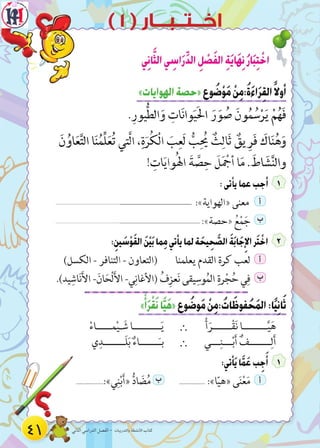 اخـتـبـار (١)
اِخْتِبَارُ نِهَايَةِ الْفَصْلِ الدِّرَاسِيِّ الثَّانِي
أَوَّلًا: الْقِرَاءَةُ: مِنْ مَوْضُوعِ «حصة الهوايات»
فَهُمْ يَرْسُمُونَ صُوَرَ الْحَيَوَانَاتِ وَالطُّيُورِ.
وَهُنَاكَ فَرِيقٌ ثَالِثٌ يُحِبُّ لَعِبَ الْكُرَةِ، الَّتِي تُعَلِّمُنَا التَّعَاوُنَ
وَالنَّشَاطَ. مَا أَجْمَلَ حِصَّةَ الْهُوَايَاتِ!
١ أجب عما يأتى:
أ معنى «الهواية»: ........................
ب جَمْعُ «حصة»: ........................
٢ اخْتَرِ الإِجَابَةَ الصَّحِيحَةَ لما يأتي مِما بَيْنَ الْقَوْسَيْنِ:
أ لعب كرة القدم يعلمنا (التعاون - التنافر - الكسل)
ب فِي حُجْرَةِ الموسيقى نَعزِفُ (الأَغَانِي-الأَلْحَانَ-الأَنَاشِيد).
ثَانِيًا: الْمَحْفُوظَاتُ: مِنْ مَوْضُوعِ «هَيَّا نَقْرَأْ»
هَـــيَّـــا نَـــقْـــرَأْ ∴ يَـــا شَـــيْـــمَـــاءُ
أَلِـــفٌ أَبْـــنِـــي ∴ بَـــاءٌ بَـــلَـــدِي
١ أَجِبْ عَمَّا يَأْتِي:
أ مَعْنَى «هَيَا»: ............ ب مُضَادُّ «أَبْنِي»: ............
٤١ كتاب الأنشطة والتدريبات - الفصل الدراسي الثاني